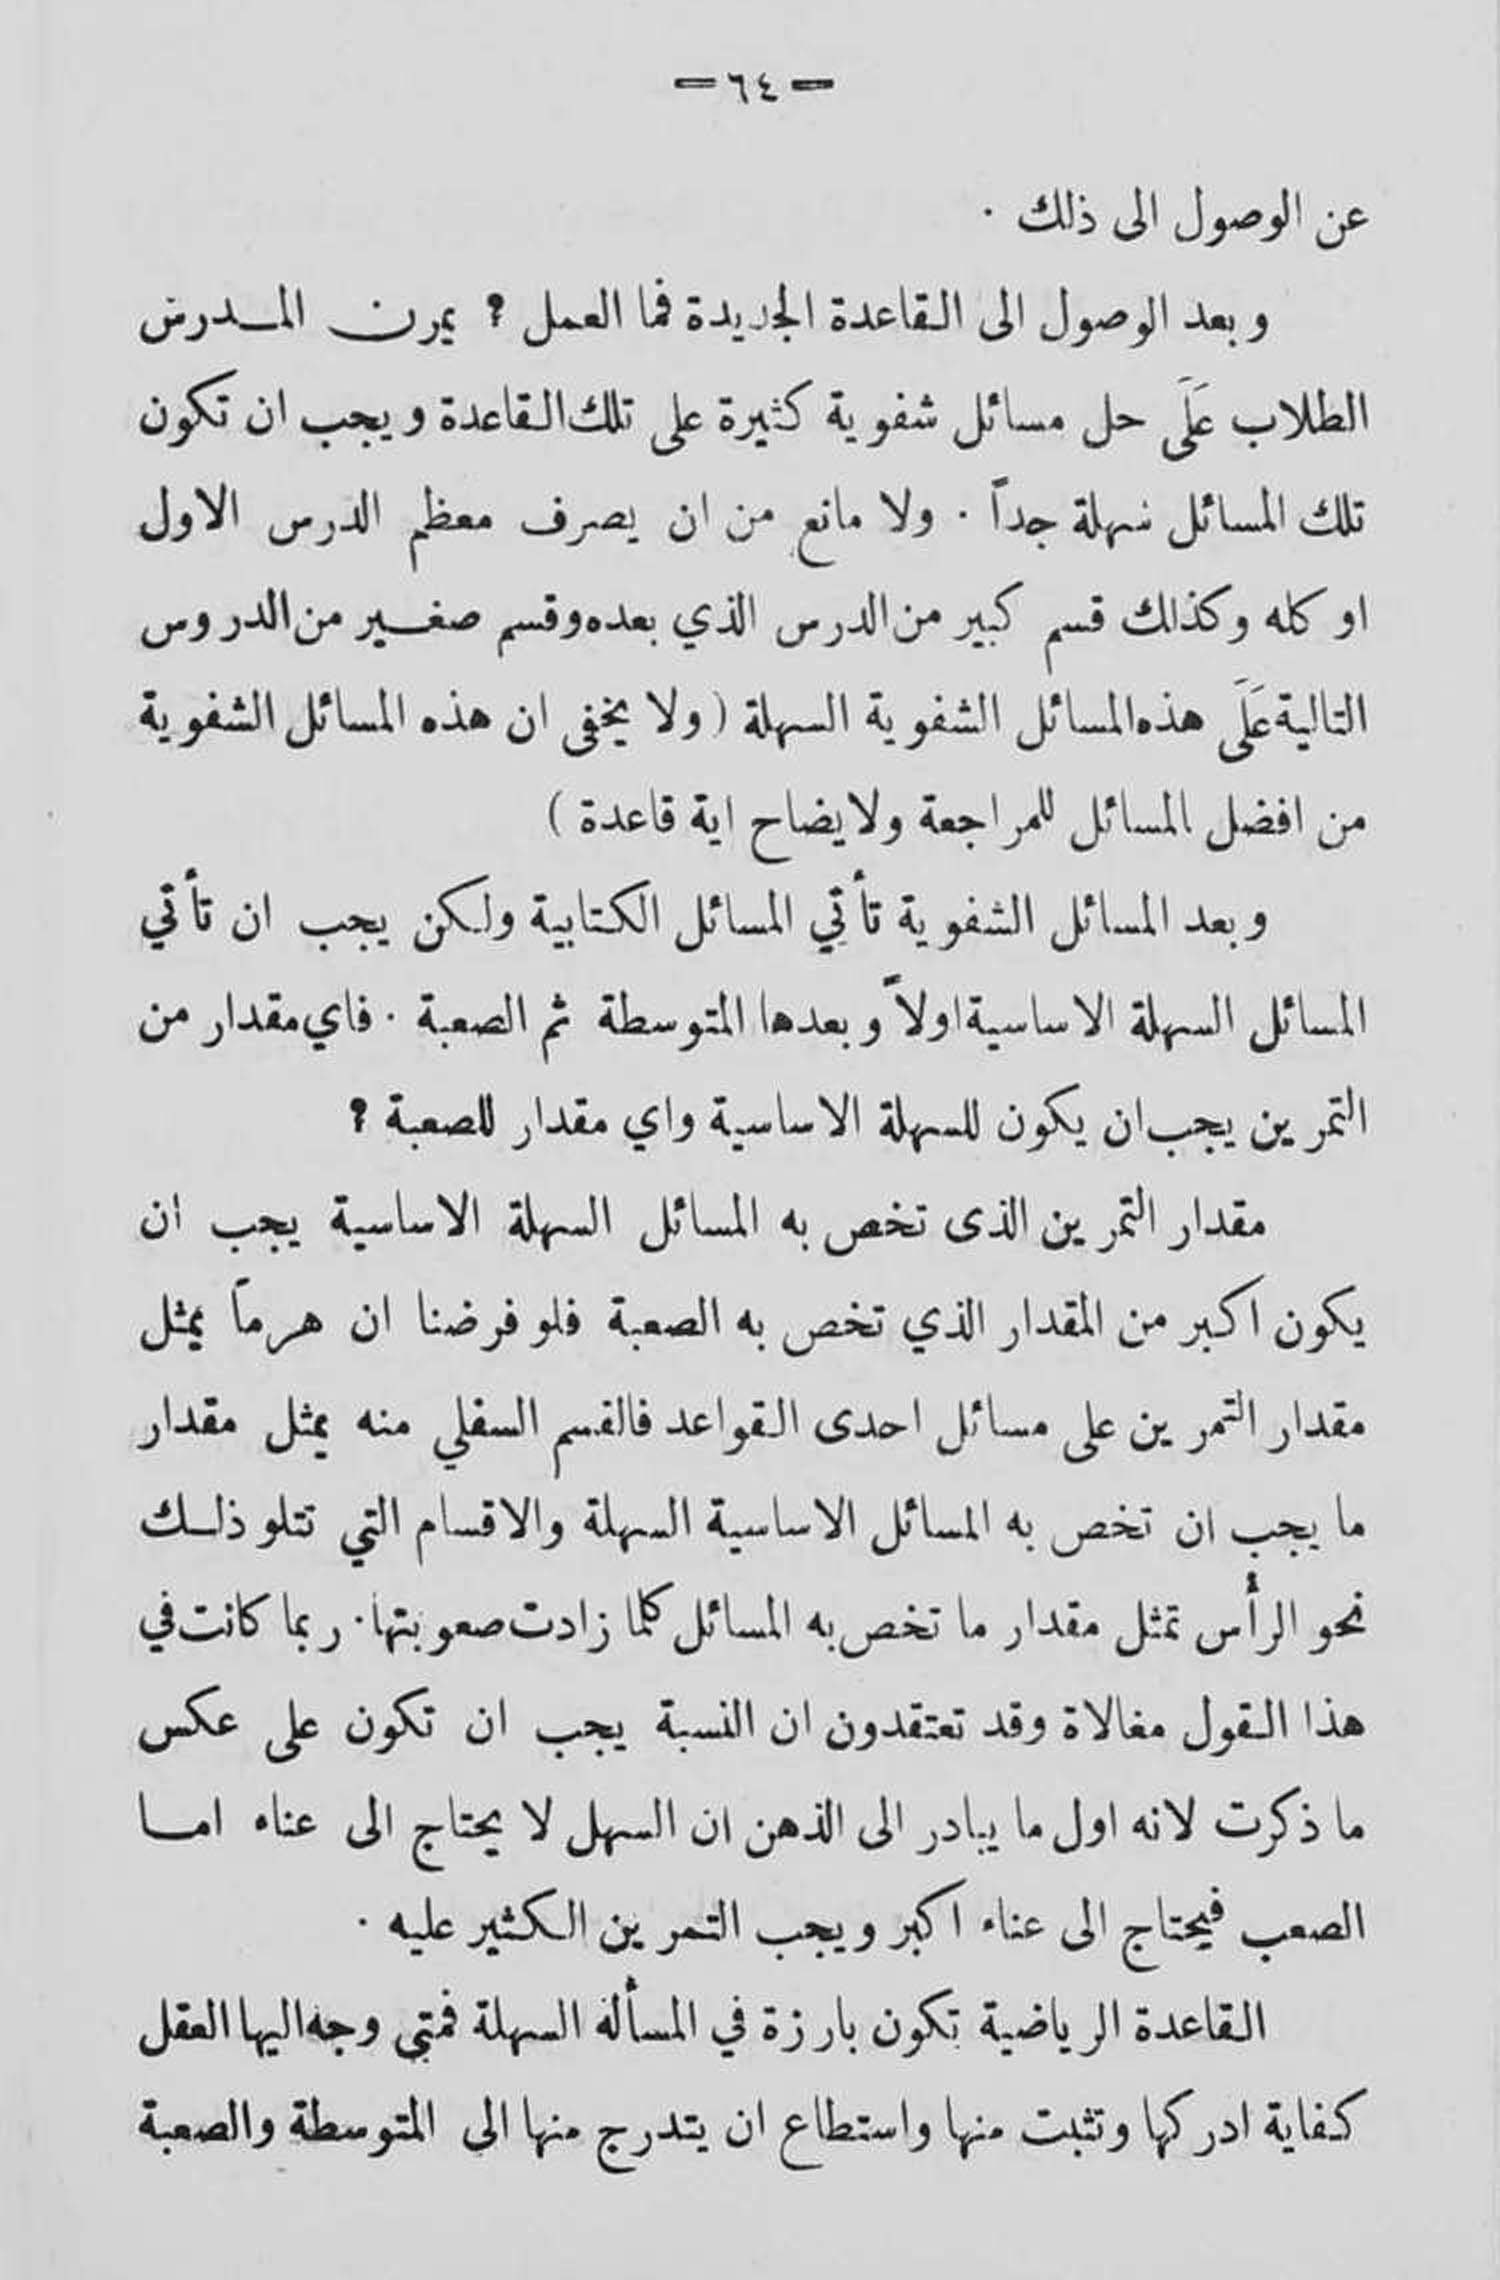 — ٦٤ —
عن الوصول الى ذلك .
وبعد الوصول الى القاعدة الجديدة فما العمل ؟ يمرن المدرس
الطلاب عَلَى حل مسائل شفوية كثيرة على تلك القاعدة ويجب ان تكون
تلك المسائل سهلة جداً . ولا مانع من ان يصرف معظم الدرس الاول
او كله وكذلك قسم كبير من الدرس الذي بعده وقسم صغير من الدروس
التالية عَلَى هذه المسائل الشفوية السهلة ( ولا يخفى ان هذه المسائل الشفوية
من افضل المسائل للمراجعة ولايضاح اية قاعدة )
وبعد المسائل الشفوية تأتي المسائل الكتابية ولكن يجب ان تأتي
المسائل السهلة الاساسية اولاً وبعدها المتوسطة ثم الصعبة . فاي مقدار من
التمرين يجب ان يكون للسهلة الاساسية واي مقدار للصعبة ؟
مقدار التمرين الذى تخص به المسائل السهلة الاساسية يجب ان
يكون اكبر من المقدار الذي تخص به الصعبة فلو فرضنا ان هرماً يمثل
مقدار التمرين على مسائل احدى القواعد فالقسم السفلي منه يمثل مقدار
ما يجب ان تخص به المسائل الاساسية السهلة والاقسام التي تتلو ذلك
نحو الرأس تمثل مقدار ما تخص به المسائل كلما زادت صعوبتها . ربما كانت في
هذا القول مغالاة وقد تعتقدون ان النسبة يجب ان تكون على عكس
ما ذكرت لانه اول ما يبادر الى الذهن ان السهل لا يحتاج الى عناء اما
الصعب فيحتاج الى عناء اكبر ويجب التمرين الكثير عليه .
القاعدة الرياضية تكون بارزة في المسألة السهلة فمتى وجه اليها العقل
كفاية ادركها وتثبت منها واستطاع ان يتدرج منها الى المتوسطة والصعبة